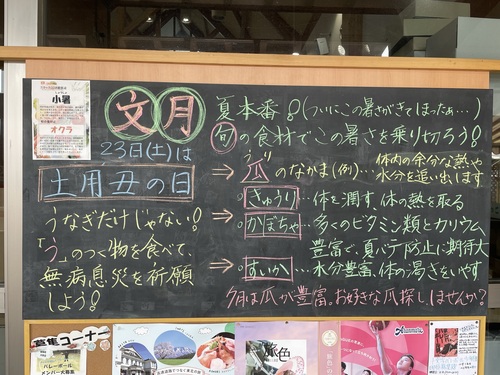 小暑
オクラ
文月
23日(土)は
土用丑の日
うなぎだけじゃない!
「う」のつく物を食べて、
無病息災を祈願
しよう!
夏本番!(ついにこの暑さがきてしまったぁ…)
旬の食材でこの暑さを乗り切ろう!
⇒瓜のなかま(例)…体内の余分な熱や
うり
水分を追い出します
きゅうり…体を潤す、体の熱を取る
かぼちゃ…多くのビタミン類とカリウム
豊富で、夏バテ防止に期待大
⇒すいか…水分豊富、体の渇きをいやす
今月は瓜が豊富。お好きな瓜探ししませんか?
募集コーナー
バレーボール
メンバー大募集
旅色